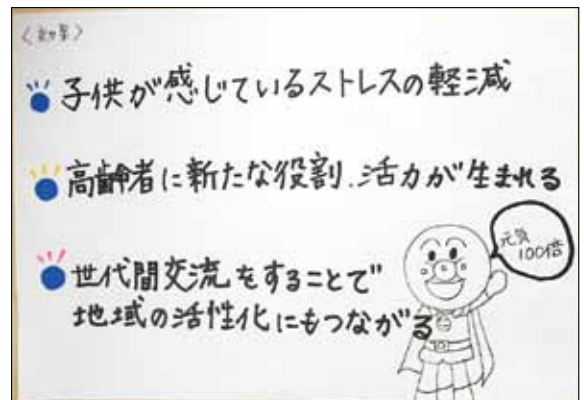 〈効果〉
子供が感じているストレスの軽減
高齢者に新たな役割、活力が生まれる
世代間交流をすることで
地域の活性化にもつながる
元気
100倍